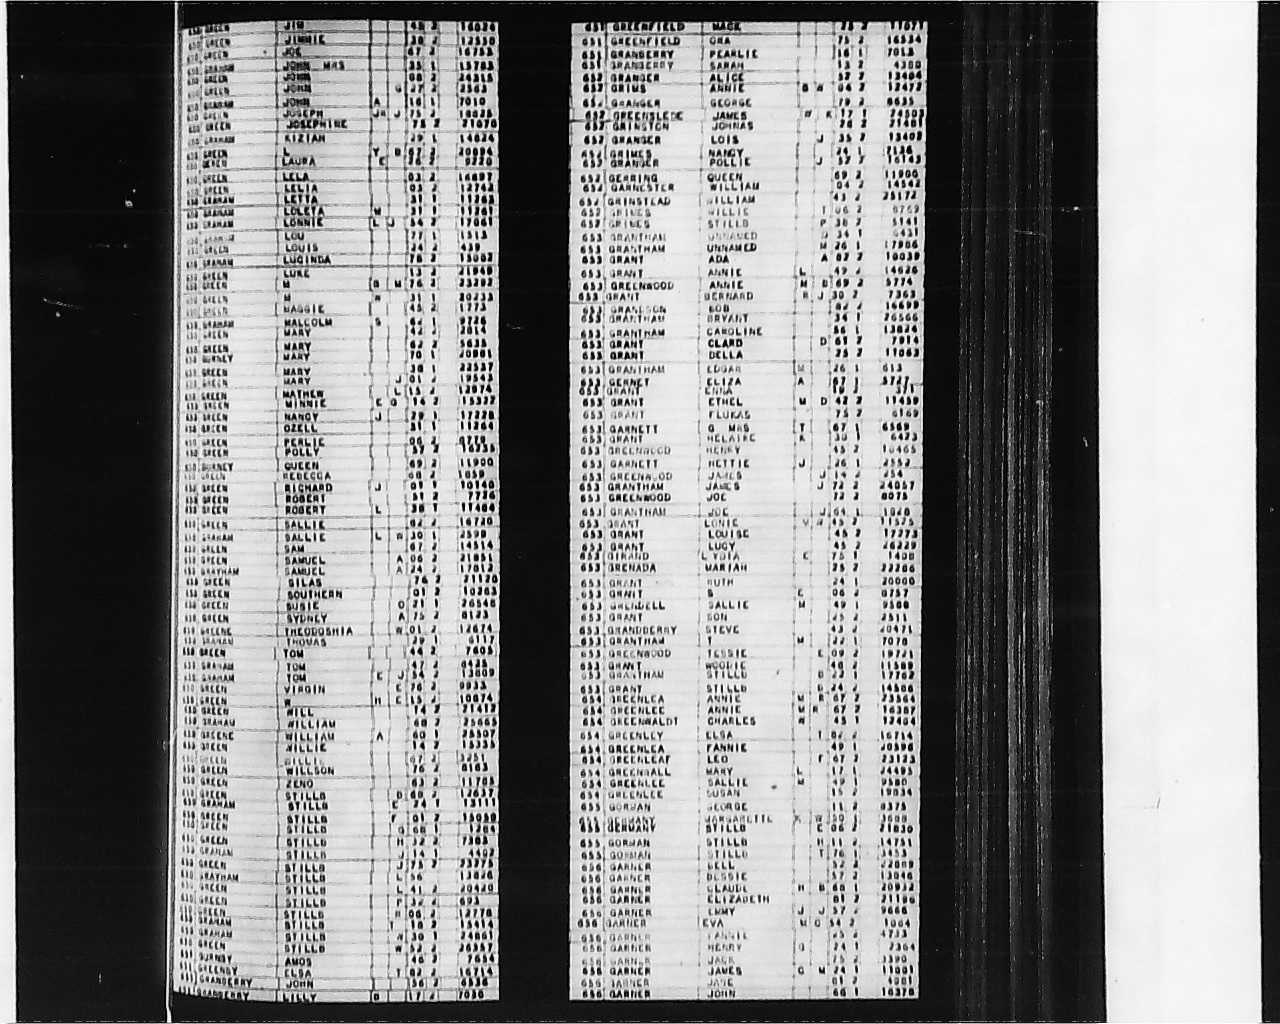 GREEN JIM 2 16026
GREEN JIMMIE 38 2 12550
GREEN JOE 67 2 16753
GRAHAM JOHN MRS 35 1 15785
GREEN JOHN 08 2 24315
GREEN JOHN G 27 2 2563
GRAHAM JOHN A 16 1 7010
GREEN JOSEPH JR J 75 2 19825
GREEN JOSEPHINE 75 2 21070
GRAHAM KIZIAH 29 1 14824
GREEN Y B 67 2 20094
GREEN LAURA E 9220
GREEN LELA 03 2 16697
GREEN LELIA 03 2 12742
GRAHAM LETTA 31 1 11263
GRAHAM LOLETA M 31 1 11261
GRAHAM LONNIE L J 54 2 17061
LOU 77 1 1513
GREEN LOUIS 24 2 439
GRAHAM LUCINDA 78 2 13002
GREEN LUKE 13 2 21949
GREEN M B M 76 2 23292
GREEN M R 31 1 20233
GREEN MAGGIE 45 2 1773
GRAHAM MALCOLM S 62 1 9781
GREEN MARY 42 2 2814
GREEN MARY 62 2 5635
GURNEY MARY 70 1 20981
GREEN MARY 38 1 22537
GREEN MARY J 01 2 19543
GREEN MATHEW L 15 2 12974
GREEN MINNIE E G 14 2 15327
GREEN NANCY J 29 1 17228
GREEN OZELL 31 1 11264
GREEN PERLIE 06 2 8778
GREEN POLLY 57 2 16235
GURNEY QUEEN 69 2 11900
GREEN REBECCA 60 2 1859
GREEN RICHARD J 01 1 10140
GREEN ROBERT 51 2 7726
GREEN ROBERT L 38 1 11404
GREEN SALLIE 62 2 16720
GRAHAM SALLIE L W 30 1 2590
GREEN SAM 67 2 14514
GREEN SAMUEL A 06 2 21851
GRAYHAM SAMUEL A 24 2 17012
GREEN SILAS 76 2 21120
GREEN SOUTHERN 01 2 10263
GREEN SUSIE O 21 1 26548
GREEN SYDNEY A 75 2 8123
GREENE THEODOSHIA W 01 2 12674
GRAHAM THOMAS 29 1 6117
GREEN TOM 44 2 7605
GRAHAM TOM 47 2 8425
GRAHAM TOM E J 54 2 13809
GREEN VIRGIN E 76 2 9933
GREEN W H E 15 2 10674
GREEN WILL 14 2 21412
GRAHAM WILLIAM 68 2 25665
GREENE WILLIAM A 60 1 25507
GREEN WILLIE 14 2 15335
GREEN WILLIE 67 2 3251
GREEN WILLSON 76 2 8163
GREEN ZENO 63 2 11705
GREEN STILLB D 68 2 22657
GRAHAM STILLB E 24 1 13111
GREEN STILLB F 01 2 15050
GREEN STILLB G 68 1 1264
GREEN STILLB H 32 2 7383
GRAHAM STILLB J 14 1 4402
GREEN STILLB J 75 2 23775
GRAYHAM STILLB L 56 13826
GREEN STILLB L 41 2 20420
GREEN STILLB P 32 2 693
GREEN STILLB R 06 2 12778
GRAHAM STILLB T 18 2 15414
GRAHAM STILLB W 30 1 24861
GREEN STILLB W 52 2 26357
GURNBY AMOS 46 2 7654
GREENBY ELSA T 82 2 16714
GRANBERRY JOHN 56 2 6536
GRANBERRY LILLY B 17 2 7030
651 GREENFIELD MACE 75 2 11071
651 GREENFIELD ORA 75 2 16534
651 GRANBERRY PEARLIE 16 1 7013
651 GRANBERRY SARAH 13 2 4380
652 GRANGER ALICE 57 2 13404
652 GRIMS ANNIE B W 04 2 12472
652 GRANGER GEORGE 79 2 6635
652 GREENSLEDE JAMES W K 17 1 24507
652 GRINSTON JOHNAS 26 2 21401
652 GRANGER LOIS J 35 2 13402
652 GRIMES NANCY 24 1 7136
652 GRANGER POLLIE J 57 2 16143
652 GERRING QUEEN 69 2 11900
652 GARNESTER WILLIAM 04 2 14542
652 GRINSTEAD WILLIAM 43 2 25172
652 GRIMES WILLIE T 06 2 8762
652 GRIMES STILLB P 38 2 5141
653 GRANTHAM UNNAMED G 34 1 6431
653 GRANTHAM UNNAMED M 26 1 17986
653 GRANT ADA A 02 2 10039
653 GRANT ANNIE L 49 2 14626
653 GREENWOOD ANNIE M D 69 2 5774
653 GRANT BERNARD R J 30 2 7363
653 GRANLSON BOB 82 2 16699
653 GRANTHAM BRYANT 34 1 26566
653 GRANTHAM CAROLINE 86 1 13824
653 GRANT CLARD D 61 2 7914
653 GRANT DELLA 25 2 17063
653 GRANTHAM EDGAR M 26 1 613
653 GERNET ELIZA A 67 1 5727
653 GRANT ENNA 371
653 GRANT ETHEL M D 42 2 11459
653 GRANT FLUKAS 75 2 6169
653 GARNETT G MRS T 67 1 6569
653 GRANT HELAIRE K 30 1 6423
653 GREENWOOD HENRY 45 2 10465
653 GARNETT HETTIE J 26 1 2552
653 GREENWOOD JAMES J 14 2 254
653 GRANTHAM JAMES J 72 2 24057
653 GREENWOOD JOE 72 2 8075
653 GRANTHAM JOE J 64 1 1828
653 GRANT LONIE V W 45 2 11525
653 GRANT LOUISE 45 2 17773
653 GRANT LUCY 45 2 26229
653 GIRAND LYDIA E 75 1 1400
653 GRENADA MARIAH 25 2 22286
653 GRANT RUTH 24 1 20000
653 GRANT S E 06 2 8757
653 GRENDELL SALLIE M 49 1 9508
653 GRANT SON 25 2 2511
653 GRANDBERRY STEVE 43 2 20471
653 GRANTHAM T M 22 1 7078
653 GREENWOOD TESSIE E 09 2 19721
653 GRANT WOODIE 48 2 11589
653 GRANTHAM STILLB D 23 1 17762
653 GRANT STILLB D 24 2 14506
654 GREENLEA ANNIE M R 67 2 23564
654 GREENLEE ANNIE M R 67 2 16350
654 GREENWALDT CHARLES W 45 1 12404
654 GREENLEY ELSA T 82 2 16714
654 GREENLEA FANNIE 49 1 20596
654 GREENLEAF LEO F 67 2 23123
654 GREENSALL MARY L 17 1 24495
654 GREENLEE SALLIE M 49 1 9580
654 GREENLEE SUSAN 15 2 19034
655 GORMAN GEORGE 11 2 8375
655 GERMANY MARGARETTE K W 50 1 3688
655 GERMANY STILLB E 06 2 21830
655 GORMAN STILLB H 11 2 14751
655 GORMAN STILLB T 76 1 3453
656 GARNER BELL 52 2 22089
656 GARNER BESSIE 57 2 13046
656 GARNER CLAUDE H B 68 1 20932
656 GARNER ELIZABETH 81 2 21196
656 GARNER EMMY J J 57 2 9666
656 GARNER EVA M G 54 2 1064
656 GARNER FANNIE 25 2 4733
656 GARNER HENRY G 24 1 2364
656 GARNER JACK 75 2 3390
656 GARNER JAMES G M 24 1 11001
656 GARNER JANE 61 2 4901
656 GARNER JOHN 66 1 16378